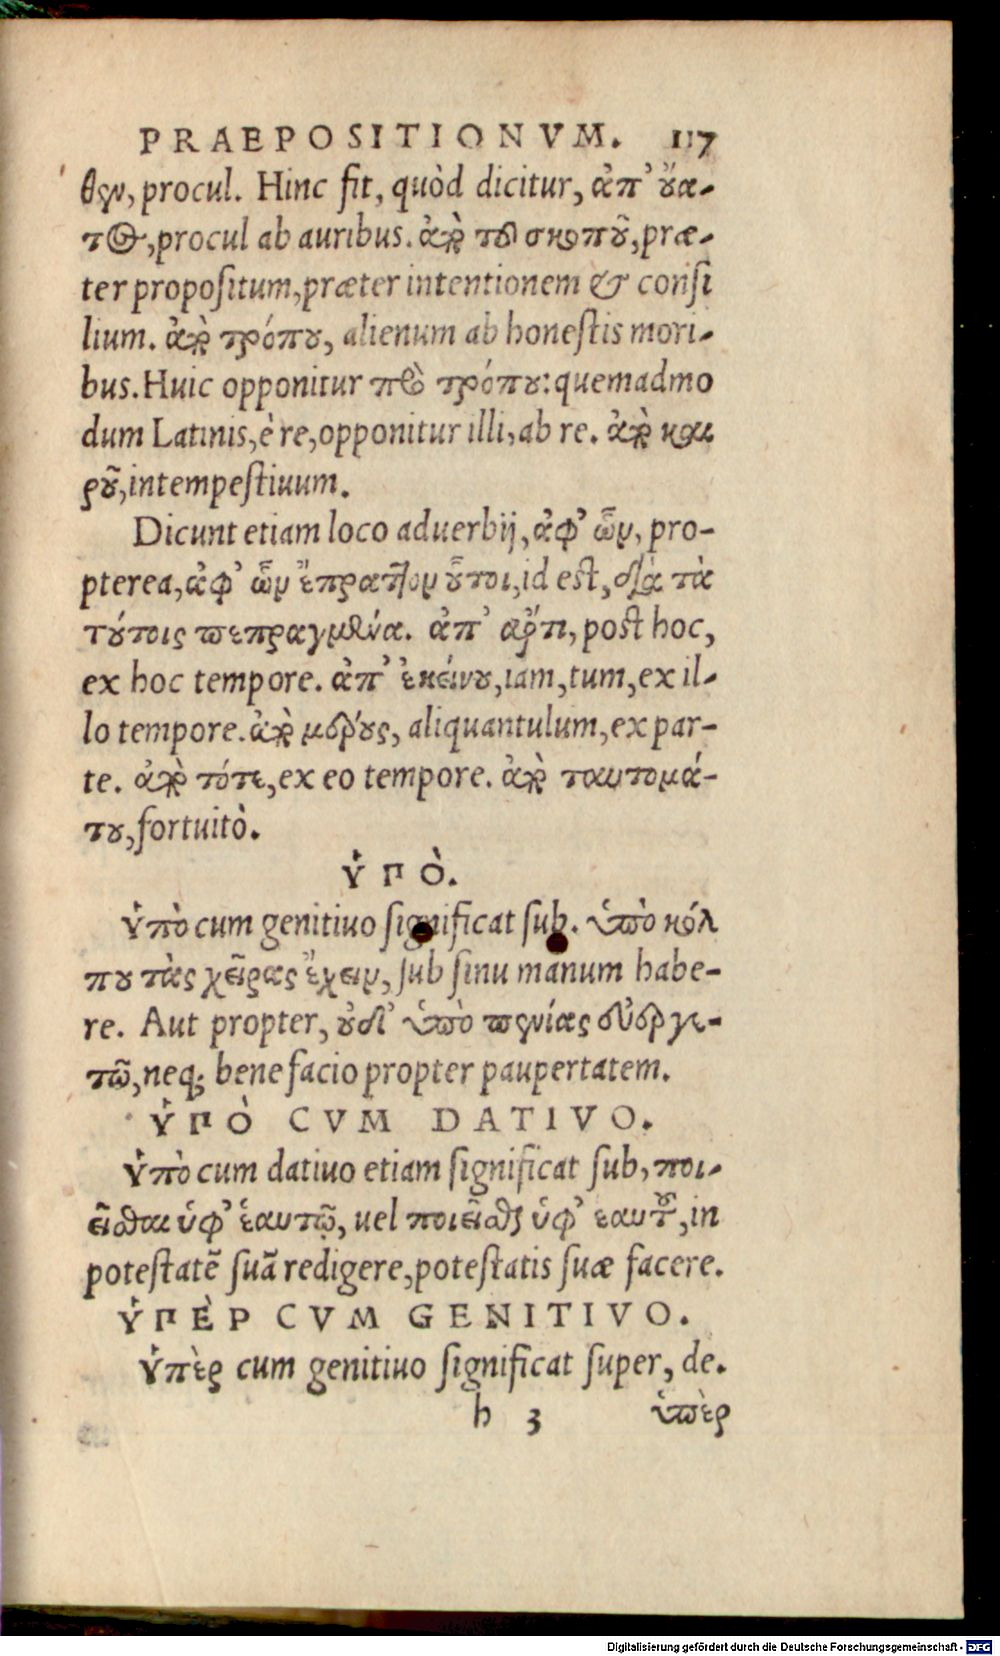 PRAEPOSITIONVM. 117
θεν, procul. Hinc fit, quòd dicitur, ἀπ’ οὔα-
τος, procul ab auribus. ἀπὸ τοῦ σκοποῦ, præ-
ter propositum, præter intentionem & consi
lium. ἀπὸ τρόπου, alienum ab honestis mori-
bus. Huic opponitur πρὸ τρόπου: quemadmo
dum Latinis, è re, opponitur illi, ab re. ἀπὸ και
ροῦ, intempestiuum.
Dicunt etiam loco aduerbij, ἀφ’ ὧν, pro-
pterea, ἀφ’ ὧν ἔπρατον οὗτοι, id est, διὰ τὰ
τούτοις πεπραγμένα. ἀπ’ ἄρτι, post hoc,
ex hoc tempore. ἀπ’ ἐκείνου, iam, tum, ex il-
lo tempore. ἀπὸ μέρους, aliquantulum, ex par-
te. ἀπὸ τότε, ex eo tempore. ἀπὸ ταυτομά-
του, fortuitò.
ὙΠῸ.
Ὑπὸ cum genitiuo significat sub. ὑπὸ κόλ
που τὰς χεῖρας ἔχειν, sub sinu manum habe-
re. Aut propter, οὐδ’ ὑπὸ πενίας εὐεργε-
τῶ, neq; bene facio propter paupertatem.
ὙΠῸ CVM DATIVO.
Ὑπὸ cum datiuo etiam significat sub, ποι-
εῖσθαι ὑφ’ ἑαυτῷ, uel ποιεῖσθαι ὑφ’ ἑαυτοῦ, in
potestatē suā redigere, potestatis suæ facere.
ὙΠΈΡ CVM GENITIVO.
Ὑπὲρ cum genitiuo significat super, de.
h 3 ὑπὲρ
Digitalisierung gefördert durch die Deutsche Forschungsgemeinschaft - DFG